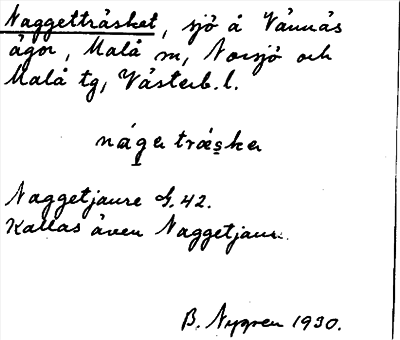 Naggetträsket, sjö å Vännäs
ägor, Malå sn, Norsjö och
Malå tg, Västerb. l.
nág̱eträs̱ka
Naggetjaure G. 42.
Kallas även Naggetjaur.
B. Nygren 1930.